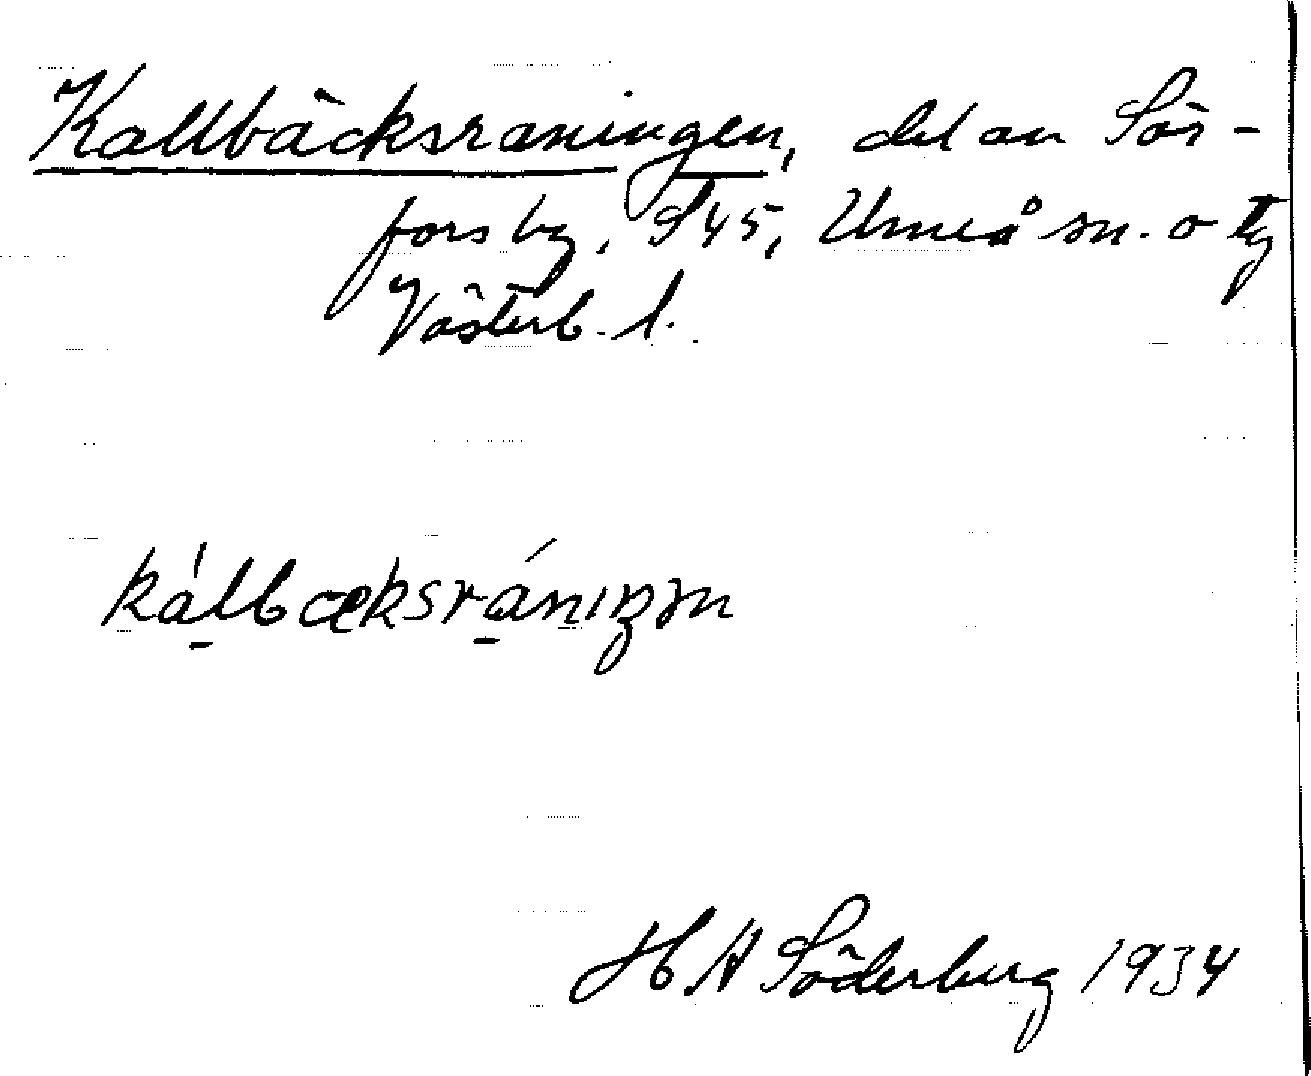 Kallbäcksraningen, del av Sör-
fors by, S 45, Umeå sn. o tg
Västerb. l.
kálbæksránıŋən
H A Söderberg 1934